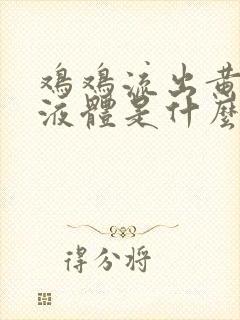 鸡鸡流出黄
液體是什麼
得分将